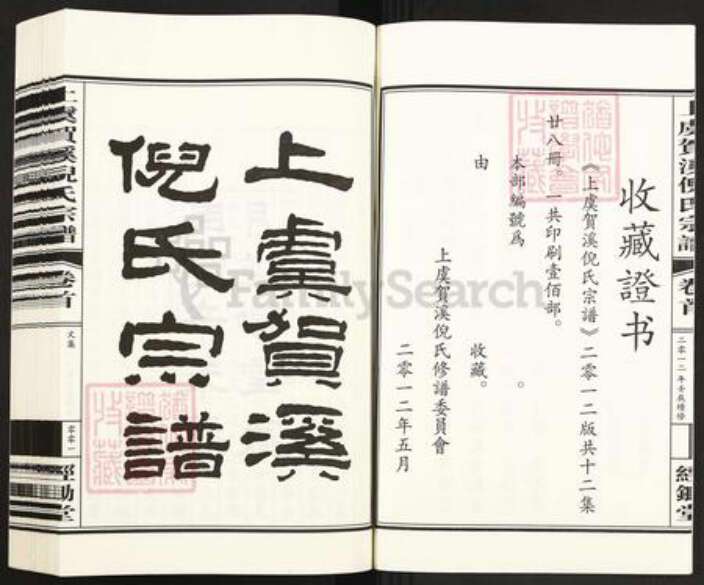 收藏證书
《上虞賀溪倪氏宗譜》二零一二版共十二集
廿八冊。一共印刷壹佰部。
本部編號爲 。
由 收藏。
上虞賀溪倪氏修譜委員會
二零一二年五月
上虞賀溪
倪氏宗譜
上虞賀溪倪氏宗譜
卷首
二零一二年壬辰續修
上虞賀溪倪氏宗譜
卷首
文集
零零一
FamilySearch